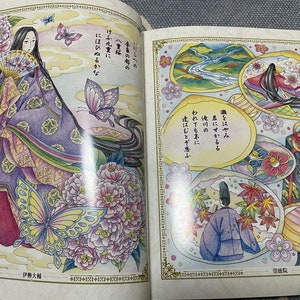 いにしへの
奈良の都の
八重桜
けふ九重に
にほひぬるかな
伊勢大輔
瀬をはやみ
岩にせかるる
滝川の
われても末に
逢はむとぞ思ふ
崇徳院